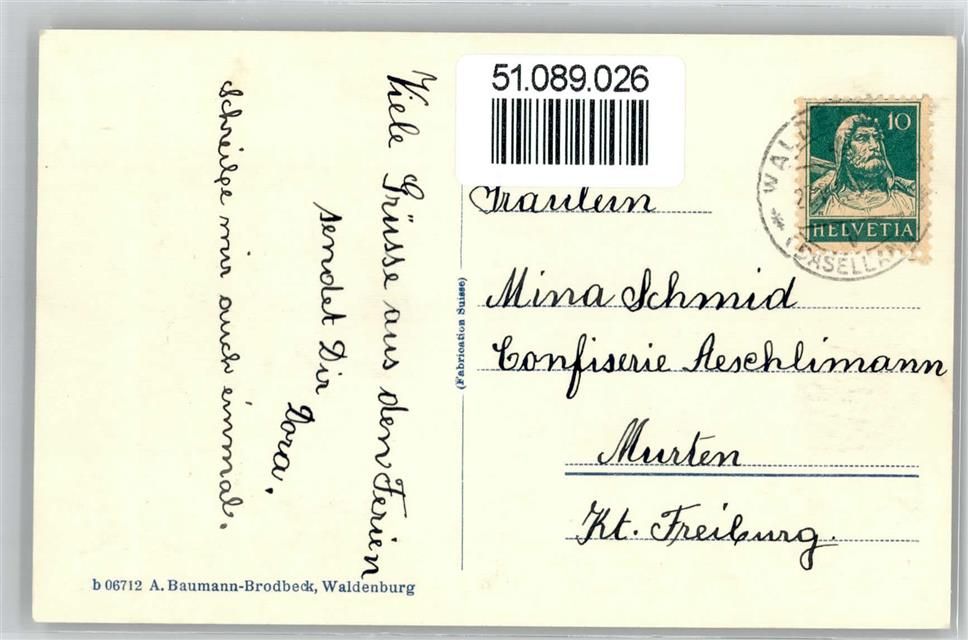 51.089.026
Viele Grüsse aus den Ferien
sendet Dir
Dora.
Schreibe mir auch einmal.
(Fabrication Suisse)
b 06712 A. Baumann-Brodbeck, Waldenburg
10
HELVETIA
WALD
(BASELLAN
Fräulein
Mina Schmid
Confiserie Aeschlimann
Murten
Kt. Freiburg.